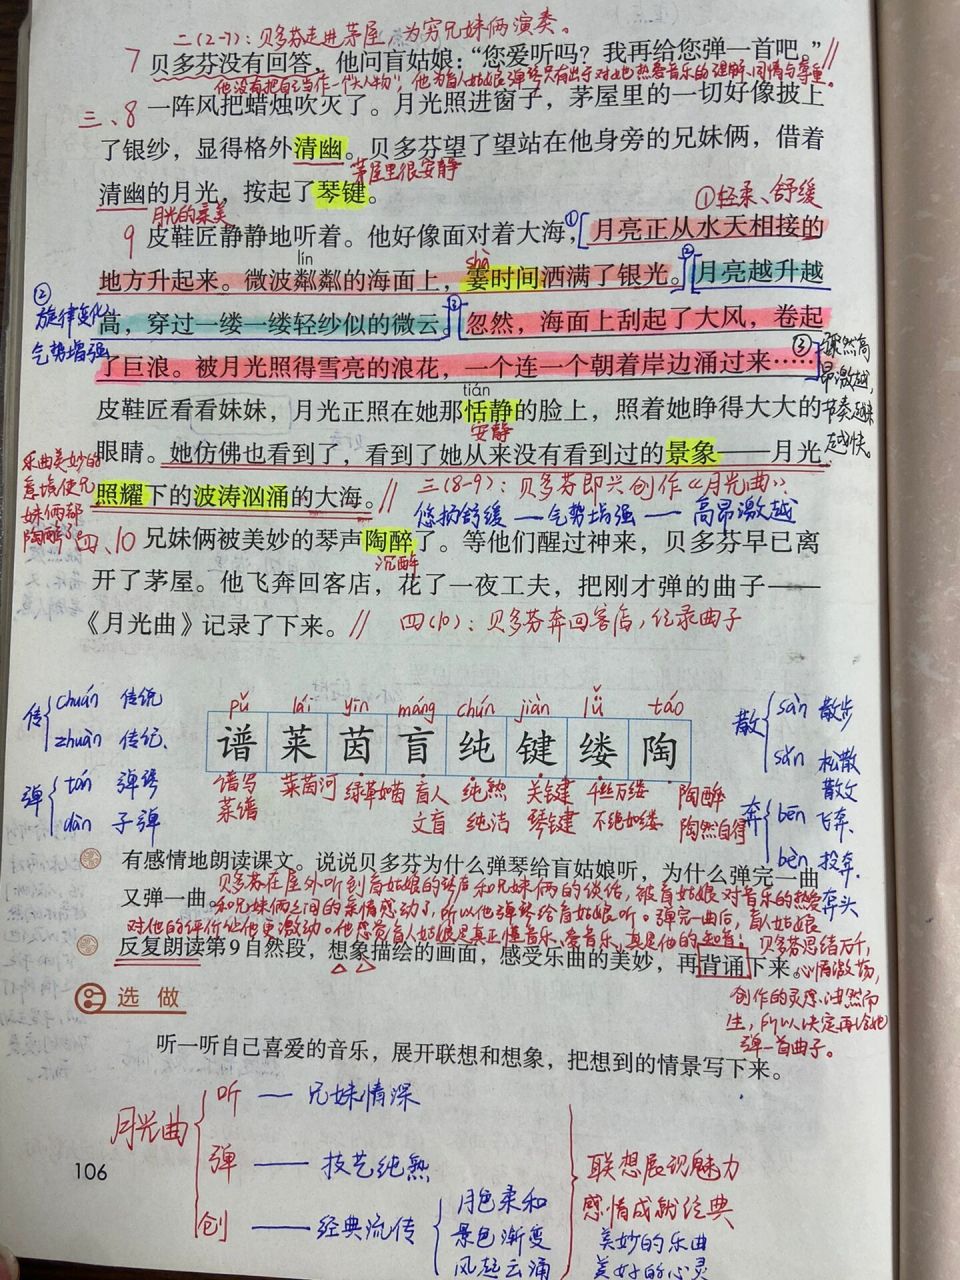 二(2-7)：贝多芬走进茅屋，为穷兄妹俩演奏。
7 贝多芬没有回答，他问盲姑娘：“您爱听吗？我再给您弹一首吧。”//
他没有把自己当作一个“大人物”，他为盲人姑娘弹琴只有出于对她热爱音乐的理解、同情与尊重。
三、8 一阵风把蜡烛吹灭了。月光照进窗子，茅屋里的一切好像披上
了银纱，显得格外清幽。贝多芬望了望站在他身旁的兄妹俩，借着
茅屋里很安静
清幽的月光，按起了琴键。
月光的柔美
①轻柔、舒缓
9 皮鞋匠静静地听着。他好像面对着大海，①月亮正从水天相接的
lín shà
地方升起来。微波粼粼的海面上，霎时间洒满了银光。②月亮越升越
②旋律变化
气势增强
高，穿过一缕一缕轻纱似的微云。③忽然，海面上刮起了大风，卷起
了巨浪。被月光照得雪亮的浪花，一个连一个朝着岸边涌过来……
③骤然高
昂激越，
节奏越来
越快。
tián
皮鞋匠看看妹妹，月光正照在她那恬静的脸上，照着她睁得大大的
安静
眼睛。她仿佛也看到了，看到了她从来没有看到过的景象——月光
照耀下的波涛汹涌的大海。//
乐曲美妙的
意境使兄
妹俩都
陶醉了
三(8-9)：贝多芬即兴创作《月光曲》
悠扬舒缓——气势增强——高昂激越
四、10 兄妹俩被美妙的琴声陶醉了。等他们醒过神来，贝多芬早已离
沉醉
开了茅屋。他飞奔回客店，花了一夜工夫，把刚才弹的曲子——
《月光曲》记录了下来。//
四(10)：贝多芬奔回客店，记录曲子
传 chuán 传统
zhuàn 传记
弹 tán 弹琴
dàn 子弹
pǔ lái yīn máng chún jiàn lǚ táo
谱 莱 茵 盲 纯 键 缕 陶
谱写 莱茵河 绿草如茵 盲人 纯熟 关键 千丝万缕 陶醉
菜谱 文盲 纯洁 琴键 不绝如缕 陶然自得
散 sàn 散步
sǎn 松散
散文
奔 bēn 飞奔
bèn 投奔
奔头
有感情地朗读课文。说说贝多芬为什么弹琴给盲姑娘听，为什么弹完一曲
又弹一曲。
贝多芬在屋外听到盲姑娘的琴声和兄妹俩的谈话，被盲姑娘对音乐的热爱
和兄妹俩之间的亲情感动了，所以他弹琴给盲姑娘听。弹完一曲后，盲人姑娘
对他的评价让他更激动。他感觉盲人姑娘是真正懂音乐、爱音乐，真是他的知音；贝多芬思绪万千，
心情激荡，
创作的灵感油然而
生，所以决定再给她
弹一首曲子。
反复朗读第9自然段，想象描绘的画面，感受乐曲的美妙，再背诵下来。
选做
听一听自己喜爱的音乐，展开联想和想象，把想到的情景写下来。
月光曲
听——兄妹情深
弹——技艺纯熟
创——经典流传
月色柔和
景色渐变
风起云涌
联想展现魅力
感情成就经典
美妙的乐曲
美好的心灵
106